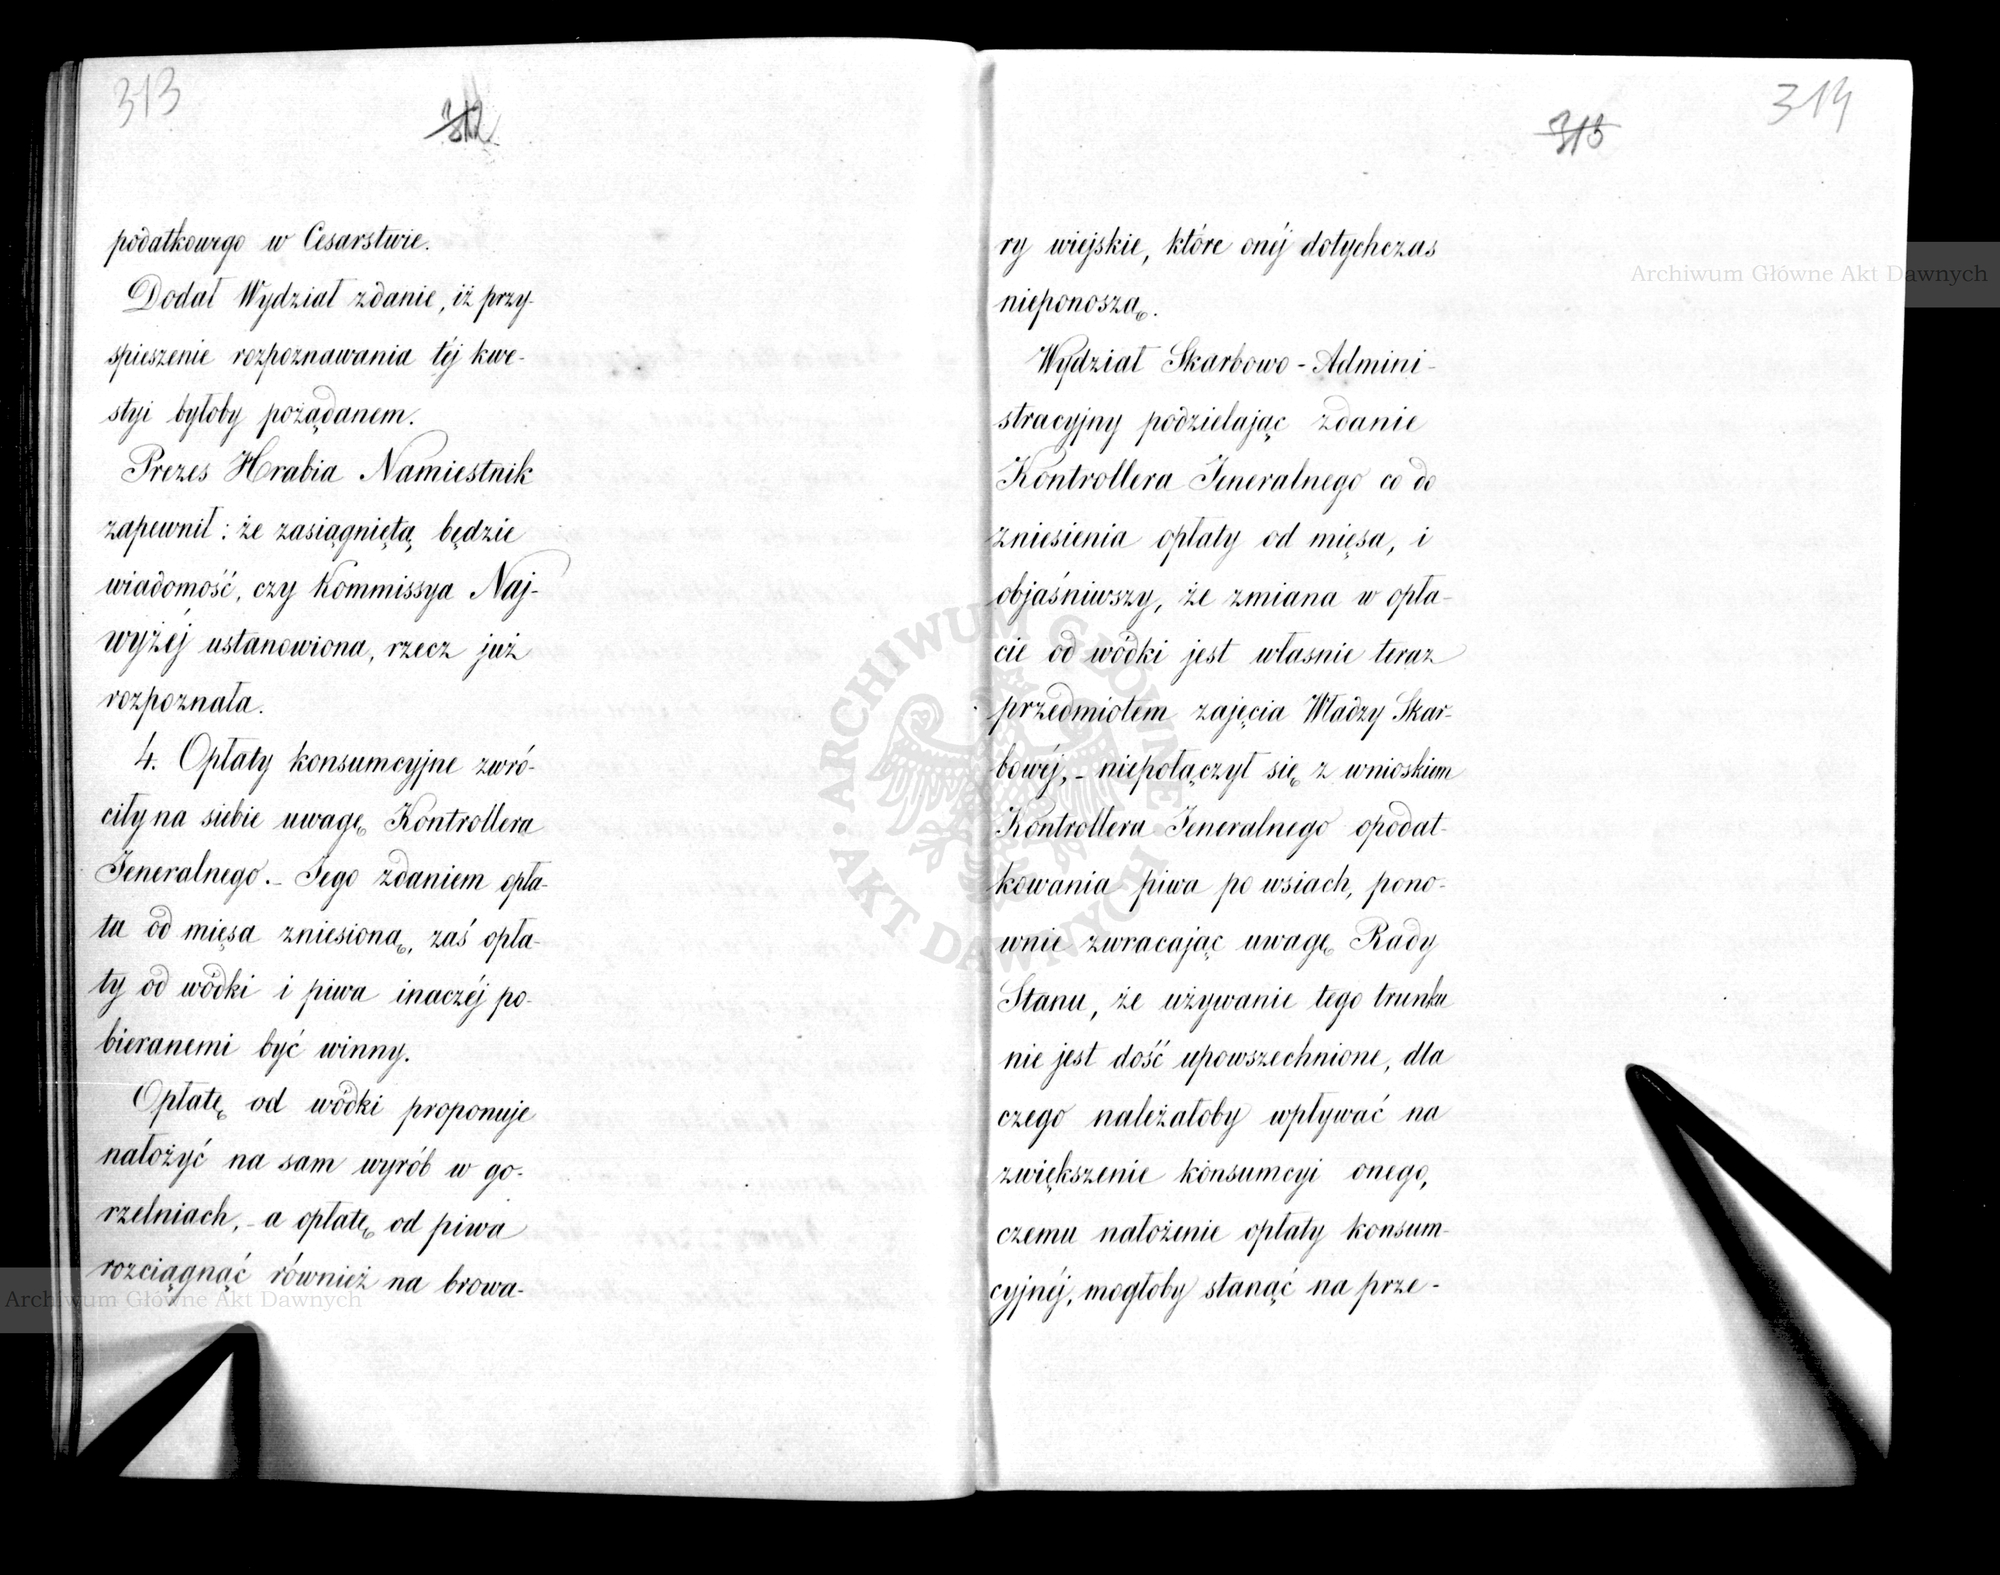 313
312
podatkowego w Cesarstwie.
Dodał Wydział zdanie, iż przy-
spieszenie rozpoznawania téj kwe-
styi byłoby pożądanem.
Prezes Hrabia Namiestnik
zapewnił: że zasiągniętą będzie
wiadomość, czy Kommissya Naj-
wyżéj ustanowiona, rzecz już
rozpoznała.
4. Opłaty konsumcyjne zwró-
ciły na siebie uwagę Kontrollera
Jeneralnego.- Jego zdaniem opła-
ta od mięsa zniesioną, zaś opła-
ty od wódki i piwa inaczéj po-
bieranemi być winny.
Opłatę od wódki proponuje
nałożyć na sam wyrób w go-
rzelniach, - a opłatę od piwa
rozciągnąć również na browa-
314
313
ry wiejskie, które onéj dotychczas
nieponoszą.
Wydział Skarbowo-Admini-
stracyjny podzielając zdanie
Kontrollera Jeneralnego co do
zniesienia opłaty od mięsa, i
objaśniwszy, że zmiana w opła-
cie od wódki jest własnie teraz
przedmiotem zajęcia Władzy Skar-
bowéj, - niepołączył się z wnioskiem
Kontrollera Jeneralnego opodat-
kowania piwa po wsiach, pono-
wnie zwracając uwagę Rady
Stanu, że używanie tego trunku
nie jest dość upowszechnione, dla
czego należałoby wpływać na
zwiększenie konsumcyi onego,
czemu nałożenie opłaty konsum-
cyjnéj, mogłoby stanąć na prze-
Archiwum Główne Akt Dawnych
ARCHIWUM GŁÓWNE • AKT DAWNYCH •
Archiwum Główne Akt Dawnych